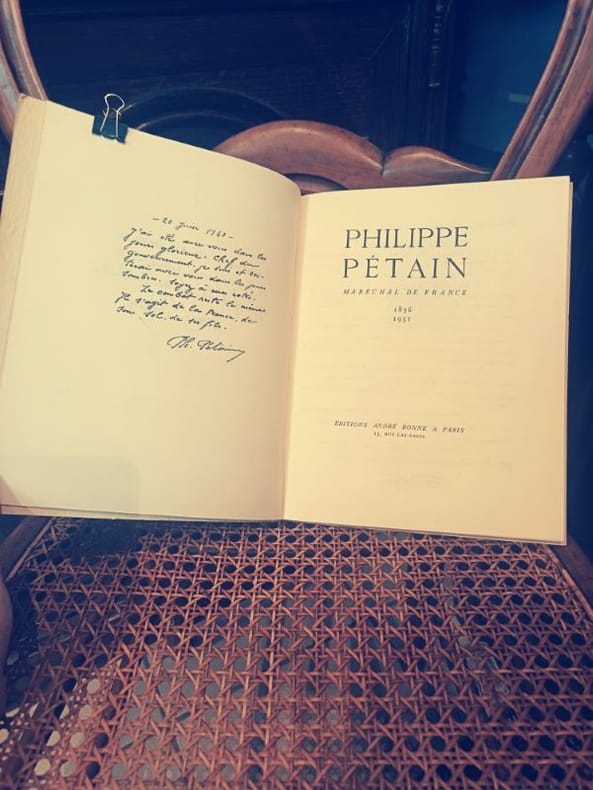 - 20 Juin 1940 -
J'ai été avec vous dans les
jours glorieux. Chef du
gouvernement, je suis et res-
terai avec vous dans les jours
sombres. Soyez à mes côtés.
Le combat reste le même.
Il s'agit de la France, de
son sol, de ses fils.
Ph. Pétain
PHILIPPE
PÉTAIN
MARÉCHAL DE FRANCE
1856
1951
ÉDITIONS ANDRÉ BONNE A PARIS
15, RUE LAS-CASES